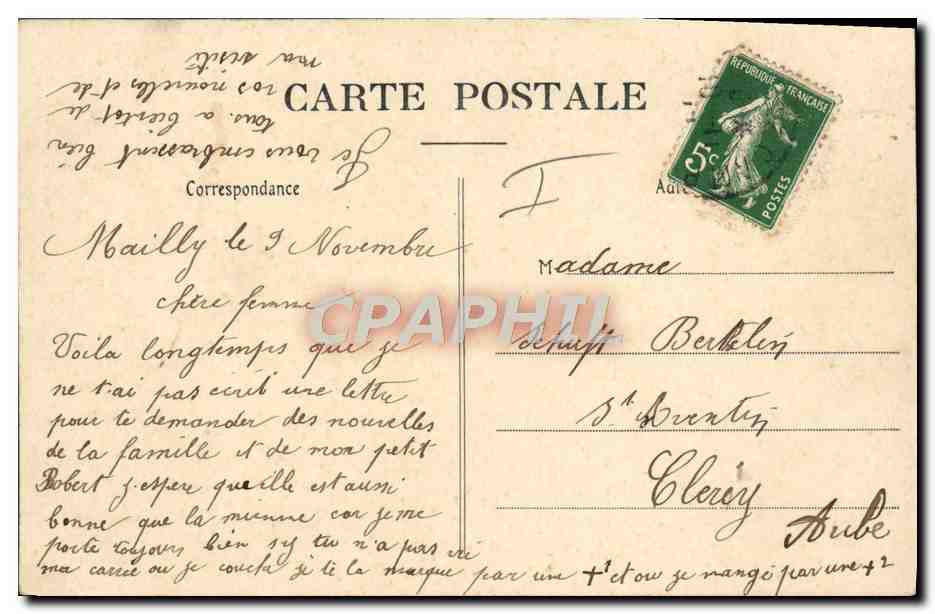 CARTE POSTALE
Correspondance
REPUBLIQUE FRANÇAISE
5c
POSTES
Mailly le 9 Novembre
chère femme
Voila longtemps que je
ne t.ai pas ecrit une lettre
pour te demander des nouvelles
de la famille et de mon petit
Robert j.espere queille est aussi
bonne que la mienne car je me
porte toujours bien sy tu n'a pas vu
ma carrée ou je couche je te la marque par un +1 et ou je mange par une +2
Je vous embrassent bien
tous. a bientot de
vos nouvelles et de
ma visite
I
Madame
Bertelin
St Aventin
Clerey
Aube
CPAPHIL